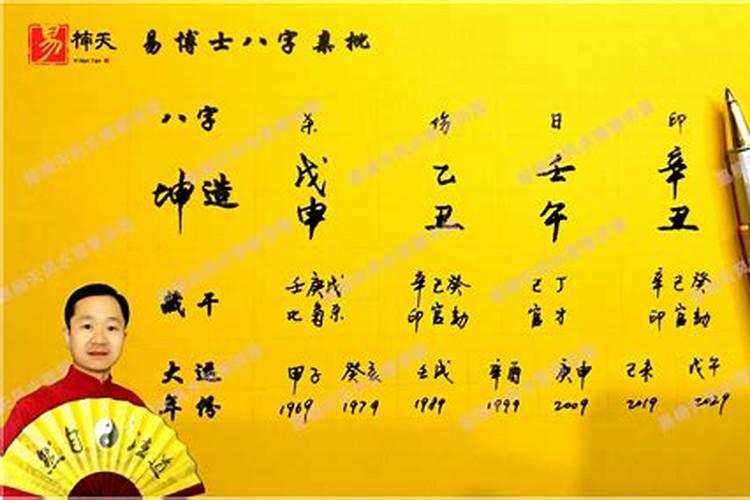 易 楠天
Yi Nan Tian
易博士八字亲批
八字 杀 伤 日 印
坤造 戊 乙 壬 辛
申 丑 午 丑
藏干 壬庚戊 辛己癸 己丁 辛己癸
比枭杀 印官劫 官才 印官劫
大运 甲子 癸亥 壬戌 辛酉 庚申 己未 戊午
年份 1969 1979 1989 1999 2009 2019 2029
然自法道